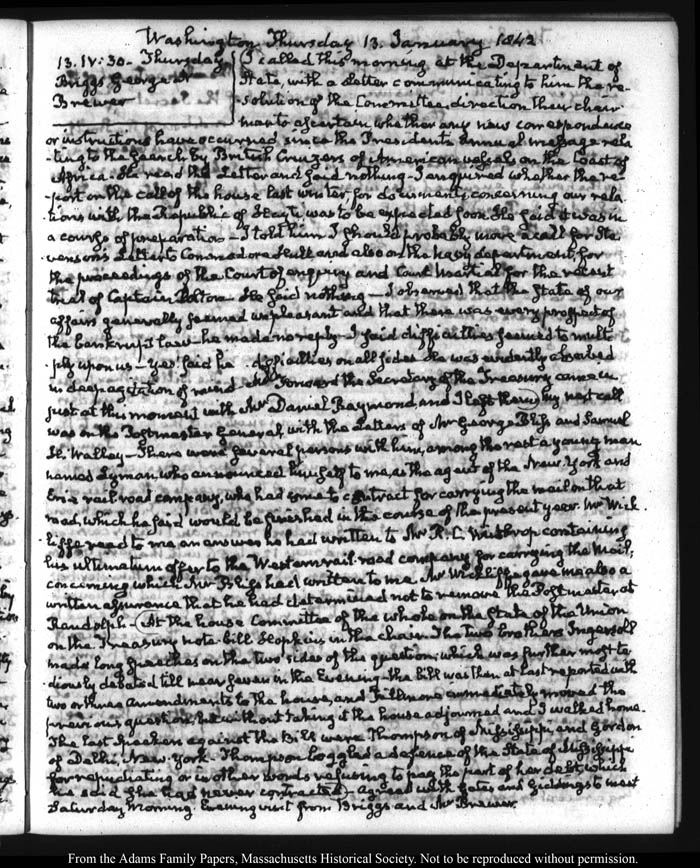 Washington Thursday 13. January 1842
13. IV:30. Thursday
Briggs George N
Brewer
I called this morning at the Department of
State, with a Letter communicating to him the re-
solution of the Committee, direction their chair-
man to ascertain whether any new correspondence
or instructions have occurred since the President's annual message rela
ting to the search by British Cruizers of American vessels on the Coast of
Africa. He read the Letter and said nothing. I enquired whether the re-
port on the call of the house last winter, for documents concerning our rela-
tions with the Republic of Hayti, was to be expected soon. He said it was in
a course of preparation — I told him I should probably move a call for Ste-
venson's Letter to Commodore Hull and also on the Navy department, for
the proceedings of the Court of enquiry and Court Martial for the recent
trial of Captain Bolton. He said nothing — I observed that the State of our
affairs generally seemed unpleasant and that there was every prospect of
the bankrupt Law — he made no reply — I said difficulties seemed to multi-
ply upon us — Yes! said he difficulties on all sides. He was evidently absorbed
in deep agitation of mind. Mr Forward the Secretary of the Treasury came in
just at this moment with Mr Daniel Raymond, and I left them. My next call
was on the Postmaster General, with the Letters of Mr George Bliss and Samuel
H. Walley — There were several persons with him, among the rest a young man
named Lyman, who announced himself to me as the agent of the New-York and
Erie rail road company, who had come to contract for carrying the mail on that
road, which he said would be finished in the course of the present year. Mr Wick-
liffe read to me an answer he had written to Mr R. C. Winthrop containing
his ultimatum offer to the Western rail-road company for carrying the Mail;
concerning which Mr Bliss had written to me. Mr Wickliffe gave me also a
written assurance that he had determined not to remove the Postmaster at
Randolph. (At the house Committee of the whole on the State of the Union
on the Treasury note bill Hopkins in the chair. The two brothers Ingersoll
made long speeches on the two sides of the question; which was further most te-
diously debated till near seven in the Evening. the bill was then at last reported with
two or three amendments to the house, and Fillmore immediately moved the
previous question, but without taking it the house adjourned and I walked home.
The last speakers against the Bill were Thompson of Mississippi and Gordon
of Delhi, New-York. Thompson boggled a defence of the State of Mississippi
for repudiating or in other words refusing to pay the part of her debt, which
he said she had never contracted) — agreed with Gates and Giddings to meet
Saturday Morning. Evening visit from Briggs and Mr Brewer.
From the Adams Family Papers, Massachusetts Historical Society. Not to be reproduced without permission.